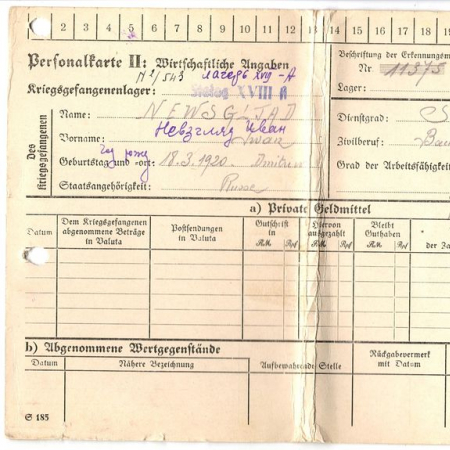 2 3 4 5 6 7 8 9 10 11 12 13 14 15 16 17 18 19
Personalkarte II: Wirtschaftliche Angaben
Beschriftung der Erkennungsm
№ 1/543 лагерь XVII-A
Nr 11373
Kriegsgefangenenlager: Stalag XVIII A
Lager:
Des Kriegsgefangenen
Name: NEWSGLJAD
Dienstgrad: S
Невзгляд Иван
Vorname: Iwan
Zivilberuf: Bau
год рожд
Geburtstag und -ort: 18.3.1920. Dmitrow
Grad der Arbeitsfähigkeit
Staatsangehörigkeit: Russe
a) Private Geldmittel
Datum
Dem Kriegsgefangenen
abgenommene Beträge
in Valuta
Postsendungen
in Valuta
Gutschrift
in
RM. Rpf
Hiervon
ausgezahlt
RM. Rpf
Bleibt
Guthaben
RM. Rpf
der Za
b) Abgenommene Wertgegenstände
Datum
Nähere Bezeichnung
Aufbewahrende Stelle
Rückgabevermerk
mit Datum
S 185